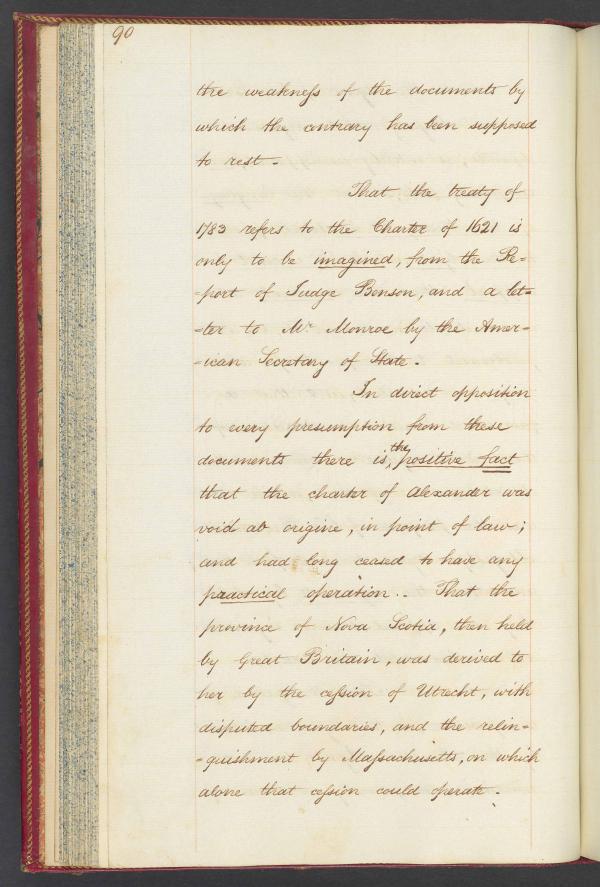 90
the weakness of the documents by
which the contrary has been supposed
to rest -
That the treaty of
1783 refers to the Charter of 1621 is
only to be imagined, from the Re=
=port of Judge Benson, and a let=
=ter to Mr Monroe by the Amer=
=ican Secretary of State.
In direct opposition
to every presumption from these
documents there is, the positive fact
that the charter of Alexander was
void ab origine, in point of law;
and had long ceased to have any
practical operation.. That the
province of Nova Scotia, then held
by Great Britain, was derived to
her by the cession of Utrecht, with
disputed boundaries, and the relin=
=quishment by Massachusetts, on which
alone that cession could operate.